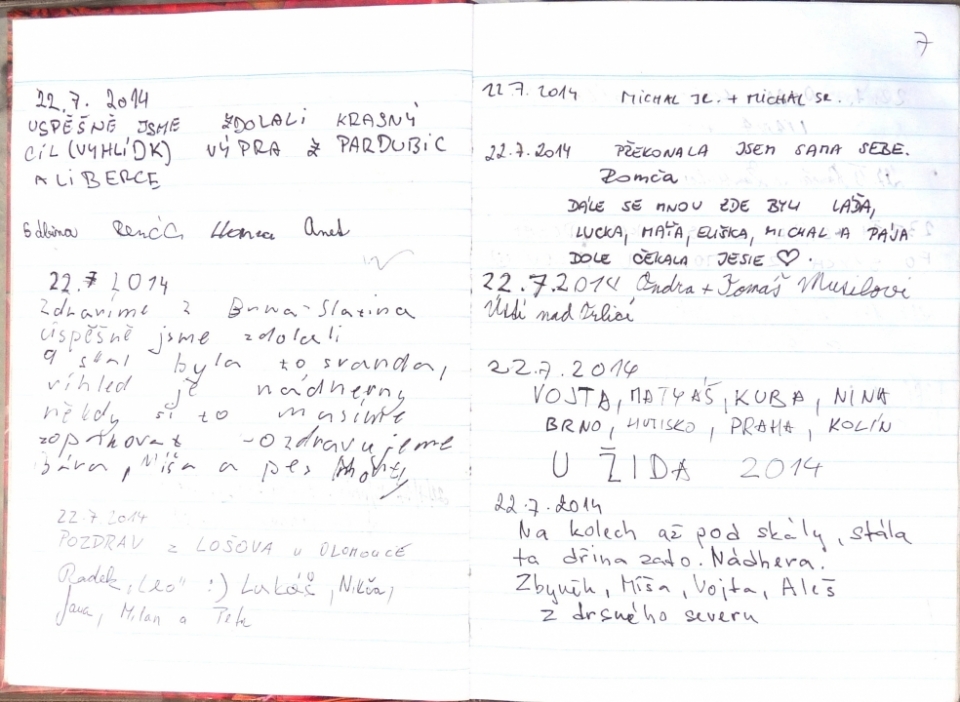 22.7. 2014
USPĚŠNĚ JSME ZDOLALI KRASNÝ
CÍL (VYHLÍDK) VÝPRA Z PARDUBIC
A LIBERCE
Hanca Anet
22.7 2014
Zdravíme z Brna-Slatina
úspěšně jsme zdolali
byla to sranda,
víhled je nádherný
někdy si to musíme
zopakovat - ozdravujeme
Bára, Míša a pes
22.7.2014
POZDRAV z LOŠOVA u OLOMOUCE
Radek, "Leo" :) Lukáš, Nikča,
Jana, Milan a Péťa
7
22.7.2014 MICHAL JR. + MICHAL SR.
22.7.2014 PŘEKONALA JSEM SAMA SEBE.
Romča
DÁLE SE MNOU ZDE BYLI LÁĎA,
LUCKA, MÁŤA, ELIŠKA, MICHAL A PÁJA
DOLE ČEKALA JESIE ♡.
22.7.2014 Ondra + Tomáš Musilovi
Ústí nad Orlicí
22.7.2014
VOJTA, MATYÁŠ, KUBA, NINA
BRNO, HUTISKO, PRAHA, KOLÍN
U ŽIDA 2014
22.7.2014
Na kolech až pod skály, stála
ta dřina zato. Nádhera.
Zbyněk, Míša, Vojta, Aleš
z drsného severu